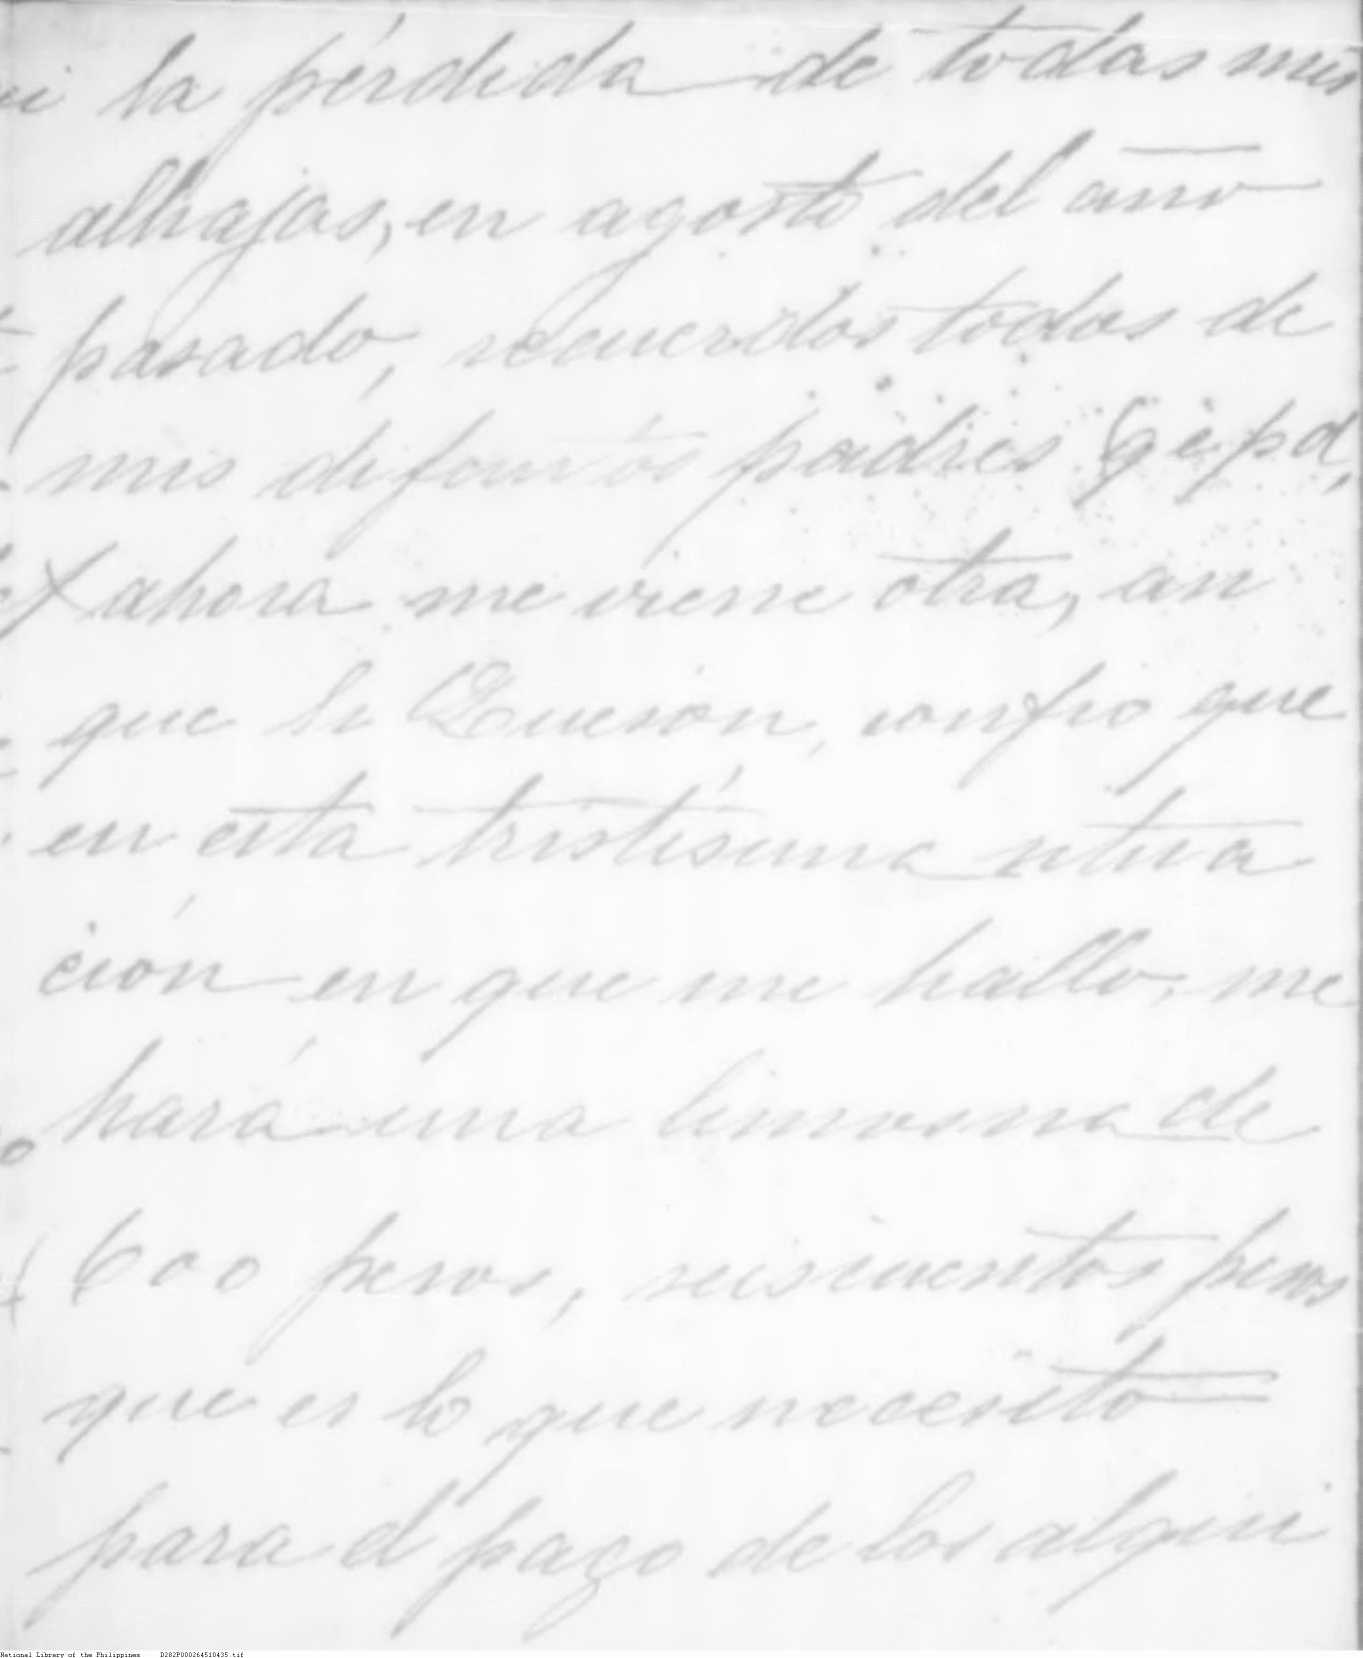 la pérdida de todas mis
alhajas, en agosto del año
pasado, recuerdos todas de
mis difuntos padres q e p d,
y ahora me viene otra, an
que confio que
en esta tristísima situa
ción en que me hallo, me
hará una limosna de
600 pesos, seiscientos pesos
que es lo que necesito
para el pago de los alqui
National Library of the Philippines D282P000264510435.tif